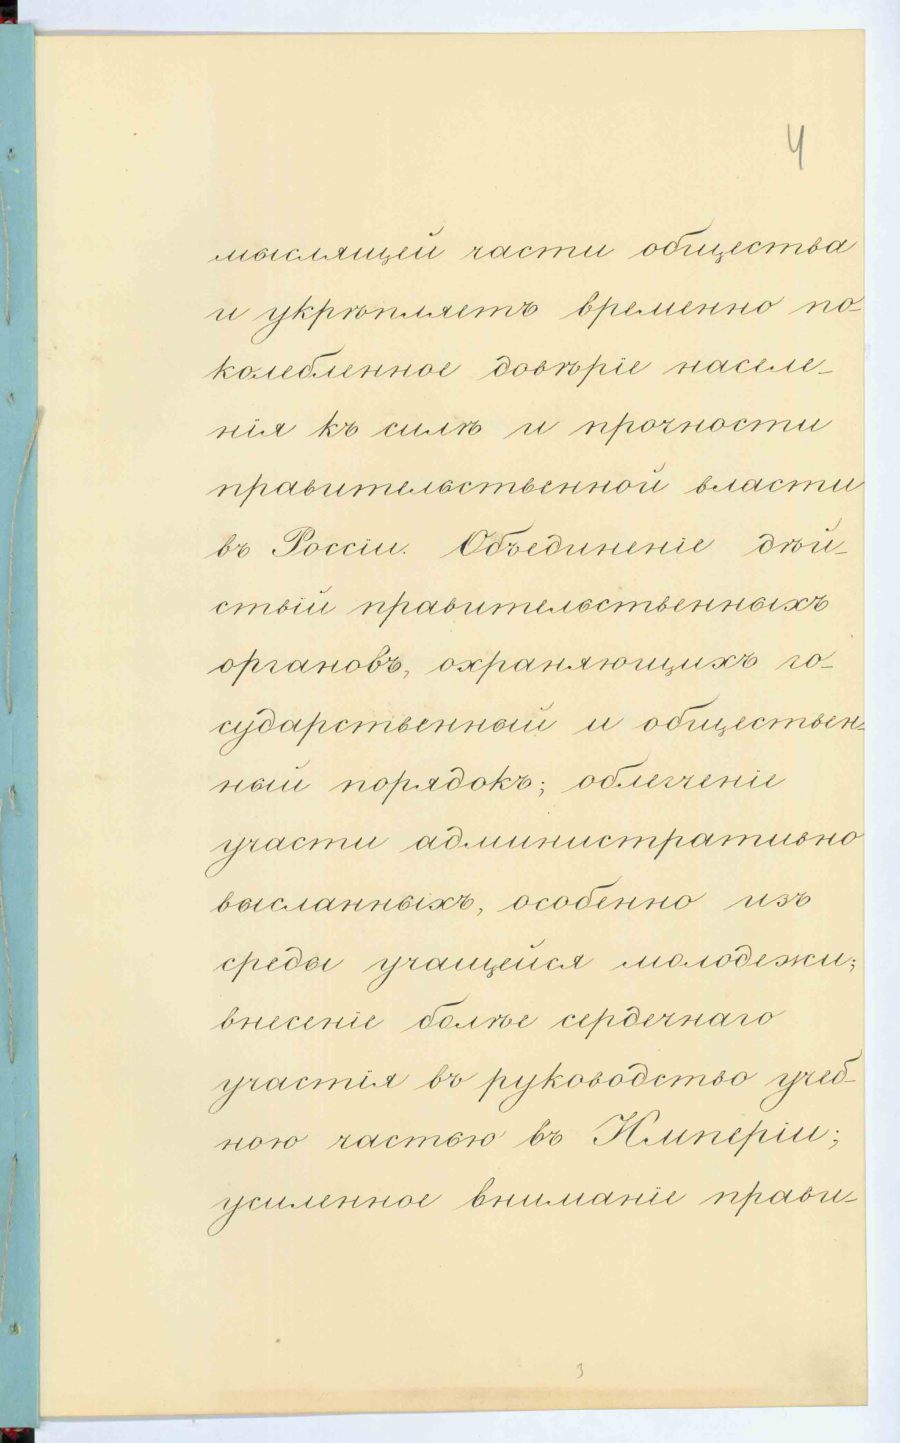 4
мыслящей части общества
и укрѣпляетъ временно по-
колебленное довѣріе населе-
нія къ силѣ и прочности
правительственной власти
въ Россіи. Объединеніе дѣй-
ствій правительственныхъ
органовъ, охраняющихъ го-
сударственный и обществен-
ный порядокъ; облегченіе
участи административно
высланныхъ, особенно изъ
среды учащейся молодежи;
внесеніе болѣе сердечнаго
участія въ руководство учеб-
ною частью въ Имперіи;
усиленное вниманіе прави-
3